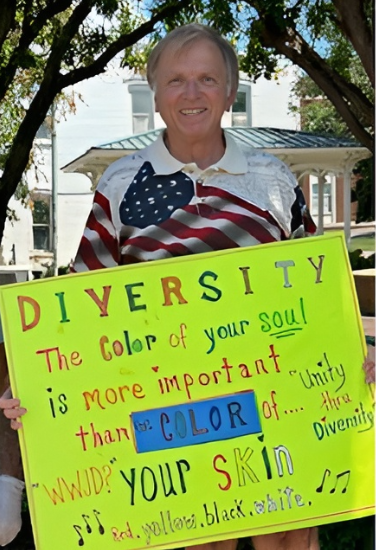 DIVERSITY
The Color of your soul
is more important
than the COLOR of....
"WWJD?" Your SKin
"Unity
thru
Diversity"
Red.yellow.black.white.